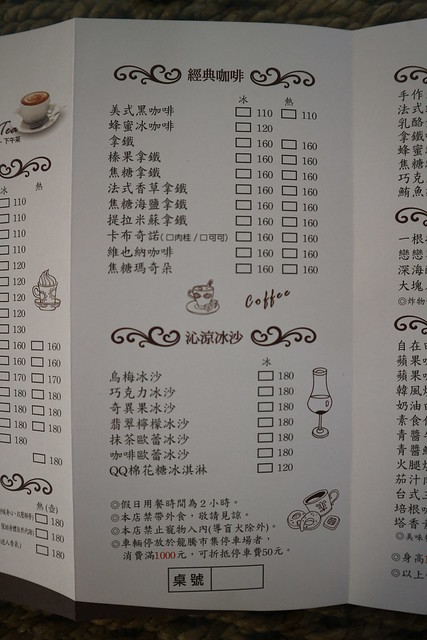 Tea
下午茶
冰 熱
110
110
110
110
120
120
120
120
130
160 160
160 160
170 170
180 180
180 180
180 180
180
180
熱(壺)
180
180
180
經典咖啡
冰 熱
美式黑咖啡 110 110
蜂蜜冰咖啡 120
拿鐵 160 160
榛果拿鐵 160 160
焦糖拿鐵 160 160
法式香草拿鐵 160 160
焦糖海鹽拿鐵 160 160
提拉米蘇拿鐵 160 160
卡布奇諾(□肉桂/□可可) 160 160
維也納咖啡 160 160
焦糖瑪奇朵 160 160
Coffee
沁涼冰沙
冰
烏梅冰沙 180
巧克力冰沙 180
奇異果冰沙 180
翡翠檸檬冰沙 180
抹茶歐蕾冰沙 180
咖啡歐蕾冰沙 180
QQ棉花糖冰淇淋 120
◎假日用餐時間為2小時。
◎本店禁帶外食,敬請見諒。
◎本店禁止寵物入內(導盲犬除外)。
◎車輛停放於龍騰市集停車場者,
消費滿1000元,可折抵停車費50元。
桌號
手作
法式
乳酪
拿鐵
蜂蜜
焦糖
巧克
鮪魚
一根
戀戀
深海
大塊
◎炸物
自在
蘋果
蘋果
韓風
奶油
素食
青醬
青醬
火腿
茄汁
台式
培根
塔香
◎美味
◎身高
◎以上